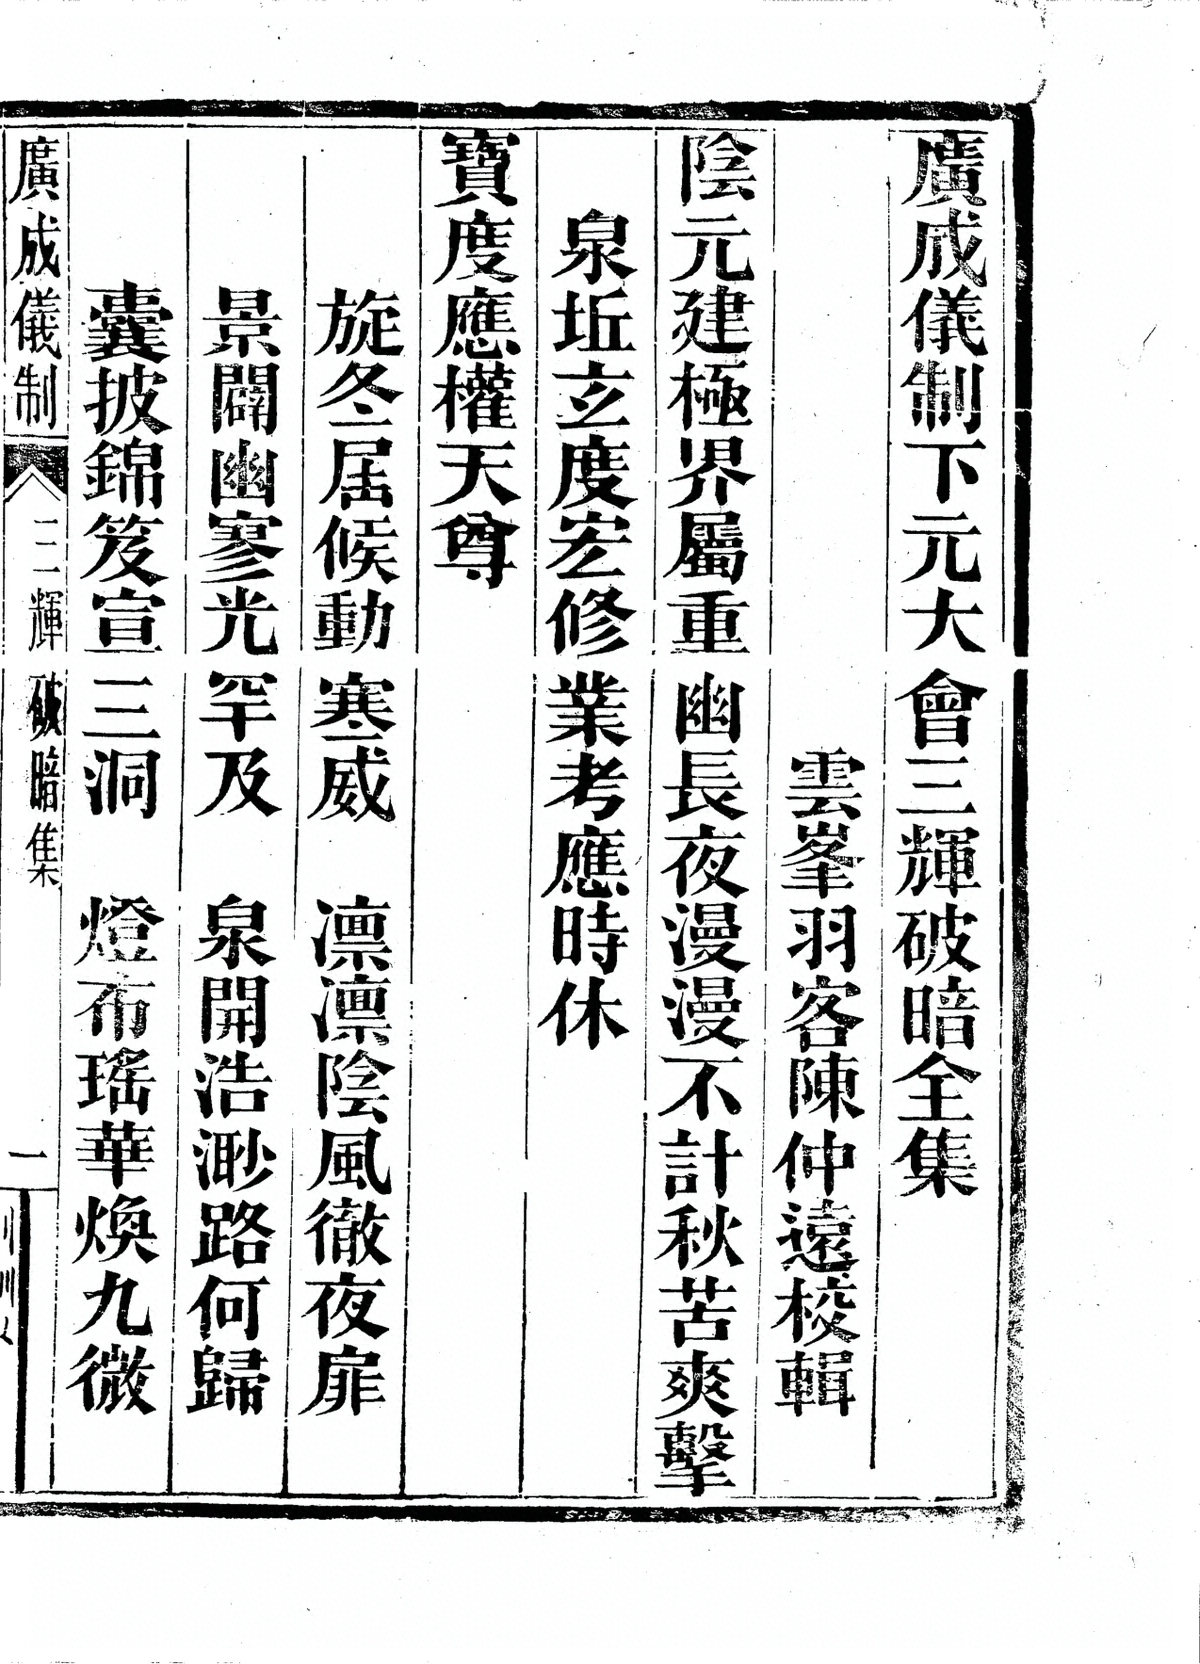 廣成儀制下元大會三輝破暗全集
雲峯羽客陳仲遠校輯
陰元建極界屬重幽長夜漫漫不計秋苦爽擊
泉坵玄度宏修業考應時休
寶度應權天尊
旋冬居候動寒威　凛凛陰風徹夜扉
景闢幽寥光罕及　泉開浩渺路何歸
囊披錦笈宣三洞　燈布瑤華煥九微
廣成儀制　三輝破暗集　一